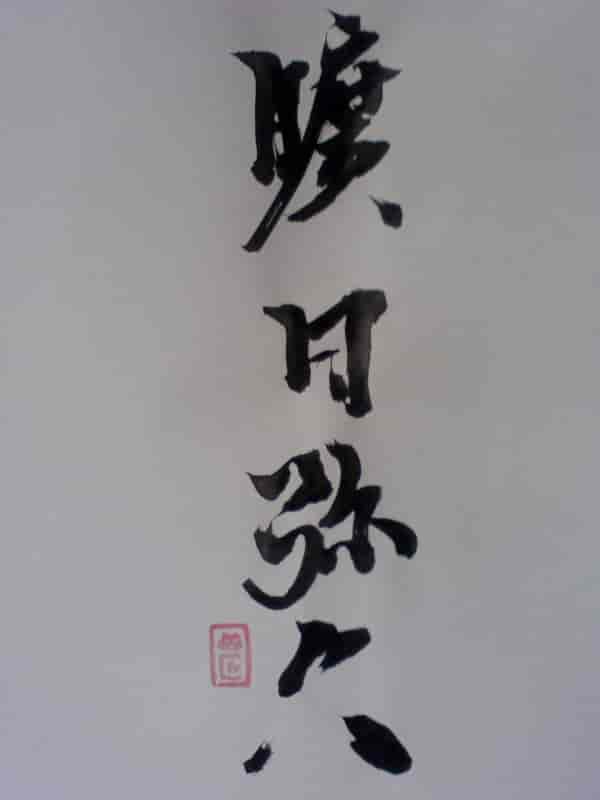 曠日弥久